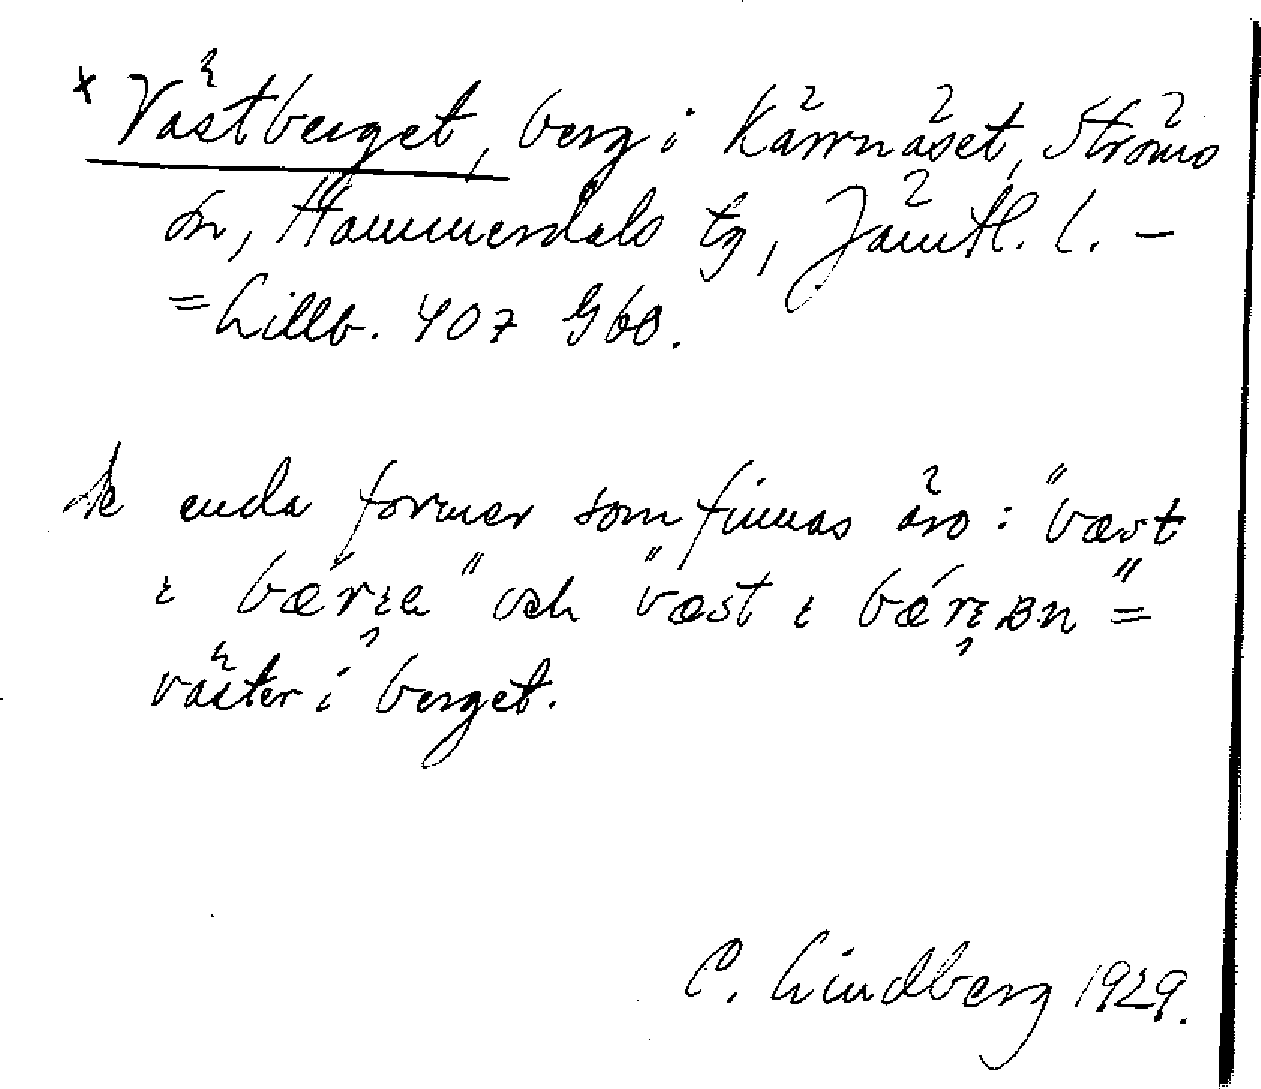 * Västberget, berg i Kärrnäset, Ströms
sn, Hammerdals tg, Jämtl. l. –
= Lillb. 407 G68.
De enda former som finnas äro: "væst
ɩ bǽrɩa" och "væst ɩ bǽrɩʙn" =
väster i berget.
C. Lindberg 1929.